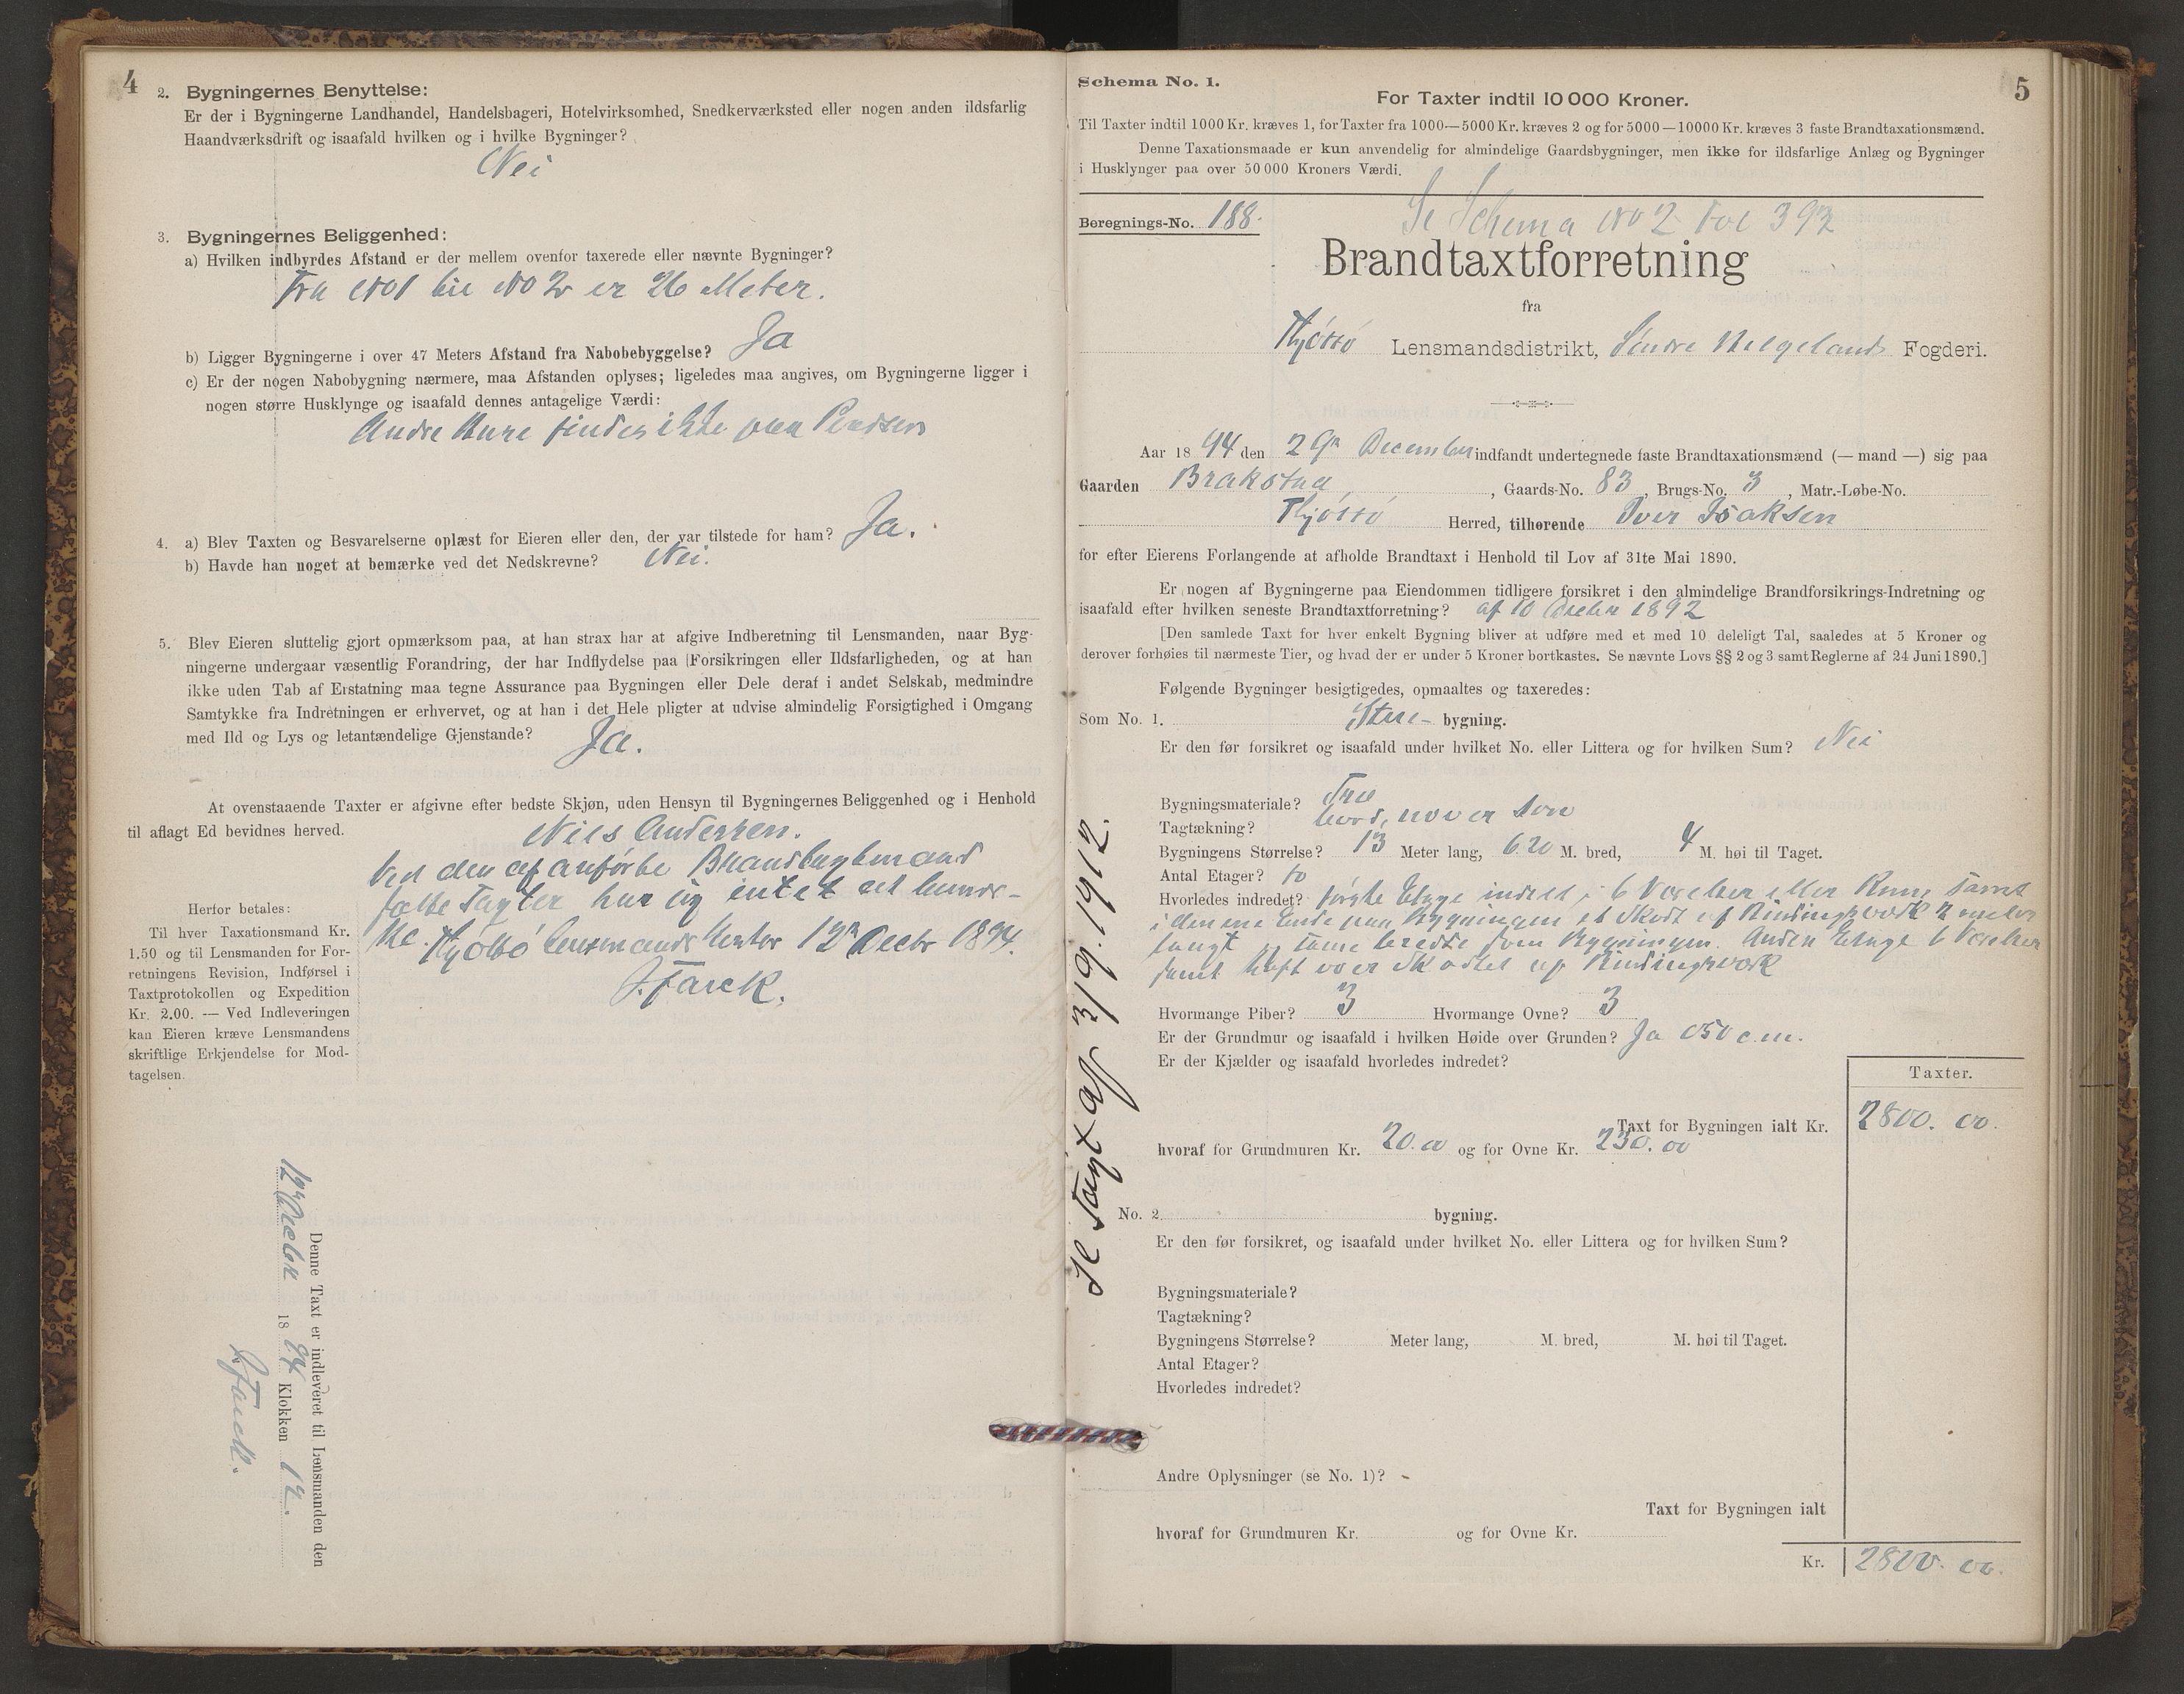 4
2. Bygningernes Benyttelse:
Er der i Bygningerne Landhandel, Handelsbageri, Hotelvirksomhed, Snedkerværksted eller nogen anden ildsfarlig
Haandværksdrift og isaafald hvilken og i hvilke Bygninger?
Nei
3. Bygningernes Beliggenhed:
a) Hvilken indbyrdes Afstand er der mellem ovenfor taxerede eller nævnte Bygninger?
Fra No 1 til No 2 er 26 Meter.
b) Ligger Bygningerne i over 47 Meters Afstand fra Nabobebyggelse? Ja
c) Er der nogen Nabobygning nærmere, maa Afstanden oplyses; ligeledes maa angives, om Bygningerne ligger i
nogen større Husklynge og isaafald dennes antagelige Værdi:
Andre Huse findes ikke paa Pladsen
4. a) Blev Taxten og Besvarelserne oplæst for Eieren eller den, der var tilstede for ham? Ja.
b) Havde han noget at bemærke ved det Nedskrevne? Nei.
5. Blev Eieren sluttelig gjort opmærksom paa, at han strax har at afgive Indberetning til Lensmanden, naar Byg-
ningerne undergaar væsentlig Forandring, der har Indflydelse paa Forsikringen eller Ildsfarligheden, og at han
ikke uden Tab af Erstatning maa tegne Assurance paa Bygningen eller Dele deraf i andet Selskab, medmindre
Samtykke fra Indretningen er erhvervet, og at han i det Hele pligter at udvise almindelig Forsigtighed i Omgang
med Ild og Lys og letantændelige Gjenstande? Ja.
At ovenstaaende Taxter er afgivne efter bedste Skjøn, uden Hensyn til Bygningernes Beliggenhed og i Henhold
til aflagt Ed bevidnes herved.
Nils Andersen.
Ved den af anførte Brandtaxtmand
satte Taxter har jeg intet at bemær-
ke. Thjøttø Lensmandskontor 12 Decbr 1894.
Herfor betales:
Til hver Taxationsmand Kr.
1.50 og til Lensmanden for For-
retningens Revision, Indførsel i
Taxtprotokollen og Expedition
Kr. 2.00. — Ved Indleveringen
kan Eieren kræve Lensmandens
skriftlige Erkjendelse for Mod-
tagelsen.
Denne Taxt er indleveret til Lensmanden den
12 Decbr 1894 Klokken 12.
5
Schema No. 1.
For Taxter indtil 10 000 Kroner.
Til Taxter indtil 1000 Kr. kræves 1, for Taxter fra 1000—5000 Kr. kræves 2 og for 5000—10000 Kr. kræves 3 faste Brandtaxationsmænd.
Denne Taxationsmaade er kun anvendelig for almindelige Gaardsbygninger, men ikke for ildsfarlige Anlæg og Bygninger
i Husklynger paa over 50 000 Kroners Værdi.
Beregnings-No. 188.
Se Schema No 2 Fol 393
Brandtaxtforretning
fra
Thjøttø Lensmandsdistrikt, Søndre Helgelands Fogderi.
Aar 1894 den December indfandt undertegnede faste Brandtaxationsmænd (— mand —) sig paa
Gaarden Brakstad, Gaards-No. 83, Brugs-No. 3, Matr.-Løbe-No.
Thjøttø Herred, tilhørende Iver Isaksen
for efter Eierens Forlangende at afholde Brandtaxt i Henhold til Lov af 31te Mai 1890.
Er nogen af Bygningerne paa Eiendommen tidligere forsikret i den almindelige Brandforsikrings-Indretning og
isaafald efter hvilken seneste Brandtaxtforretning? af 10 1892
[Den samlede Taxt for hver enkelt Bygning bliver at udføre med et med 10 deleligt Tal, saaledes at 5 Kroner og
derover forhøies til nærmeste Tier, og hvad der er under 5 Kroner bortkastes. Se nævnte Lovs §§ 2 og 3 samt Reglerne af 24 Juni 1890.]
Følgende Bygninger besigtigedes, opmaaltes og taxeredes:
Som No. 1. Stue- bygning.
Er den før forsikret og isaafald under hvilket No. eller Littera og for hvilken Sum? Nei
Bygningsmateriale? Træ
Tagtækning? bord, never
Bygningens Størrelse? 13 Meter lang, 6.20 M. bred, 4 M. høi til Taget.
Antal Etager? to
Hvorledes indredet? første Etage inddelt i 6 Værelser eller Rum, samt
i den ene Ende paa Bygningen et Skott af Bindingsværk 2 meter
langt og samme bredde som Bygningen. Anden Etage 6 Værelser
samt loft over Skottet af Bindingsværk
Hvormange Piber? 3 Hvormange Ovne? 3
Er der Grundmur og isaafald i hvilken Høide over Grunden? Ja 050 c.m.
Er der Kjælder og isaafald hvorledes indredet?
Taxter.
Taxt for Bygningen ialt Kr. 2800. 00.
hvoraf for Grundmuren Kr. 20.00 og for Ovne Kr. 230.00
Se Taxt aff 3/9. 1912.
No. 2. bygning.
Er den før forsikret, og isaafald under hvilket No. eller Littera og for hvilken Sum?
Bygningsmateriale?
Tagtækning?
Bygningens Størrelse? Meter lang, M. bred, M. høi til Taget.
Antal Etager?
Hvorledes indredet?
Andre Oplysninger (se No. 1)? -
Taxt for Bygningen ialt
hvoraf for Grundmuren Kr. og for Ovne Kr.
Kr. 2800. 00.